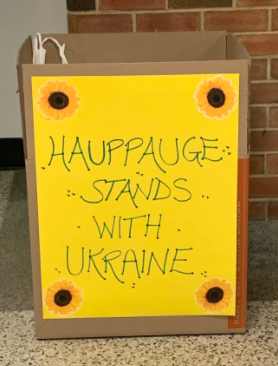 HAUPPAUGE
STANDS
WITH
UKRAINE